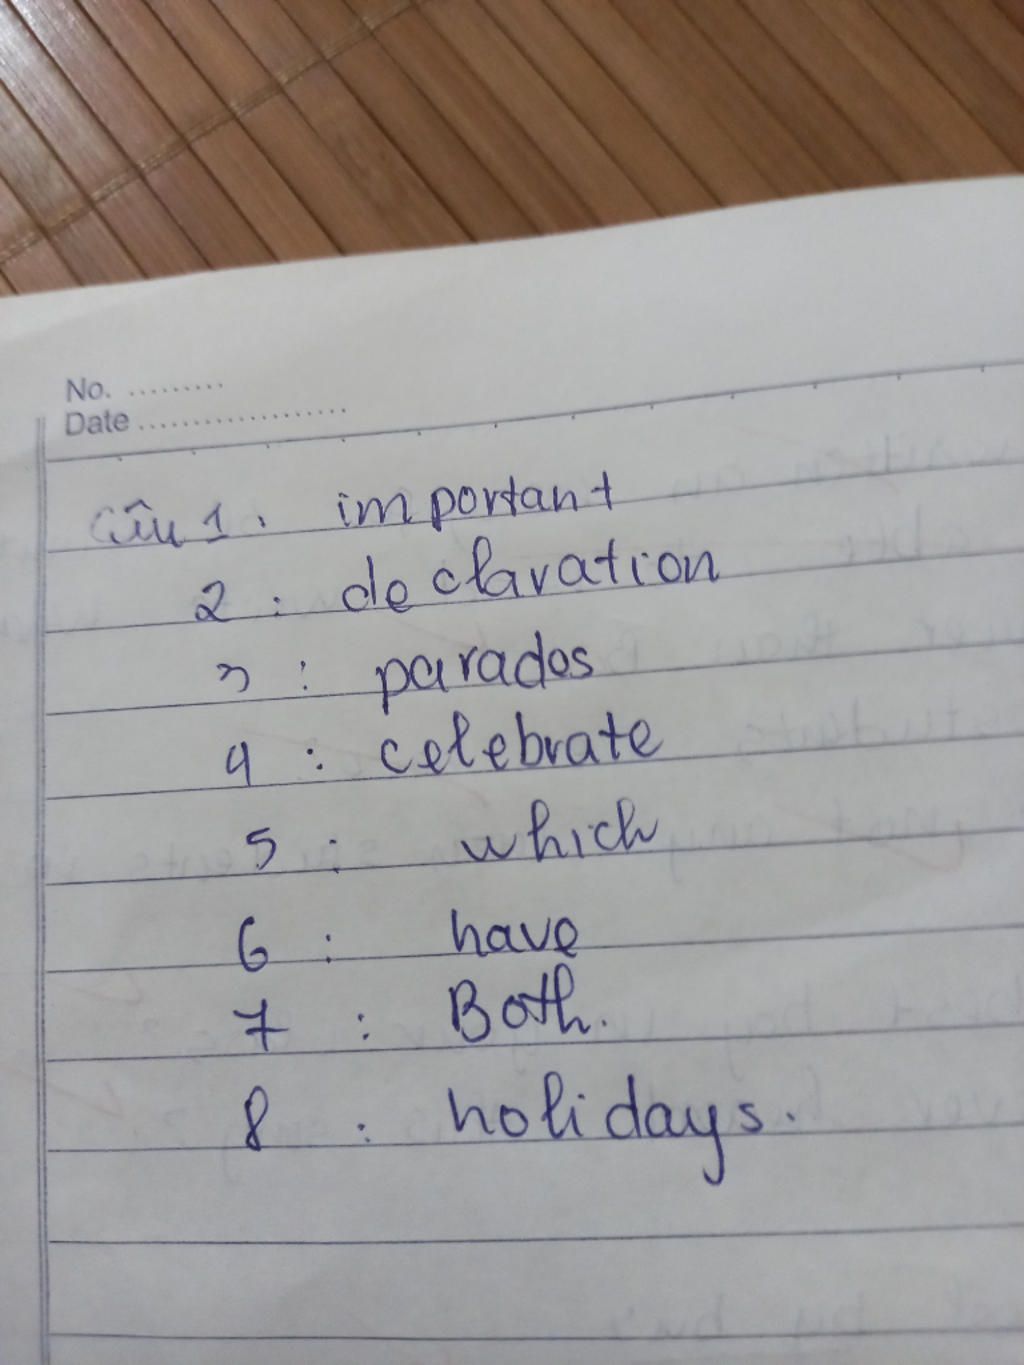 No. .........
Date ...................
Câu 1. important
2 : declaration
3 : parades
4 : celebrate
5 : which
6 : have
7 : Both.
8 : holidays.